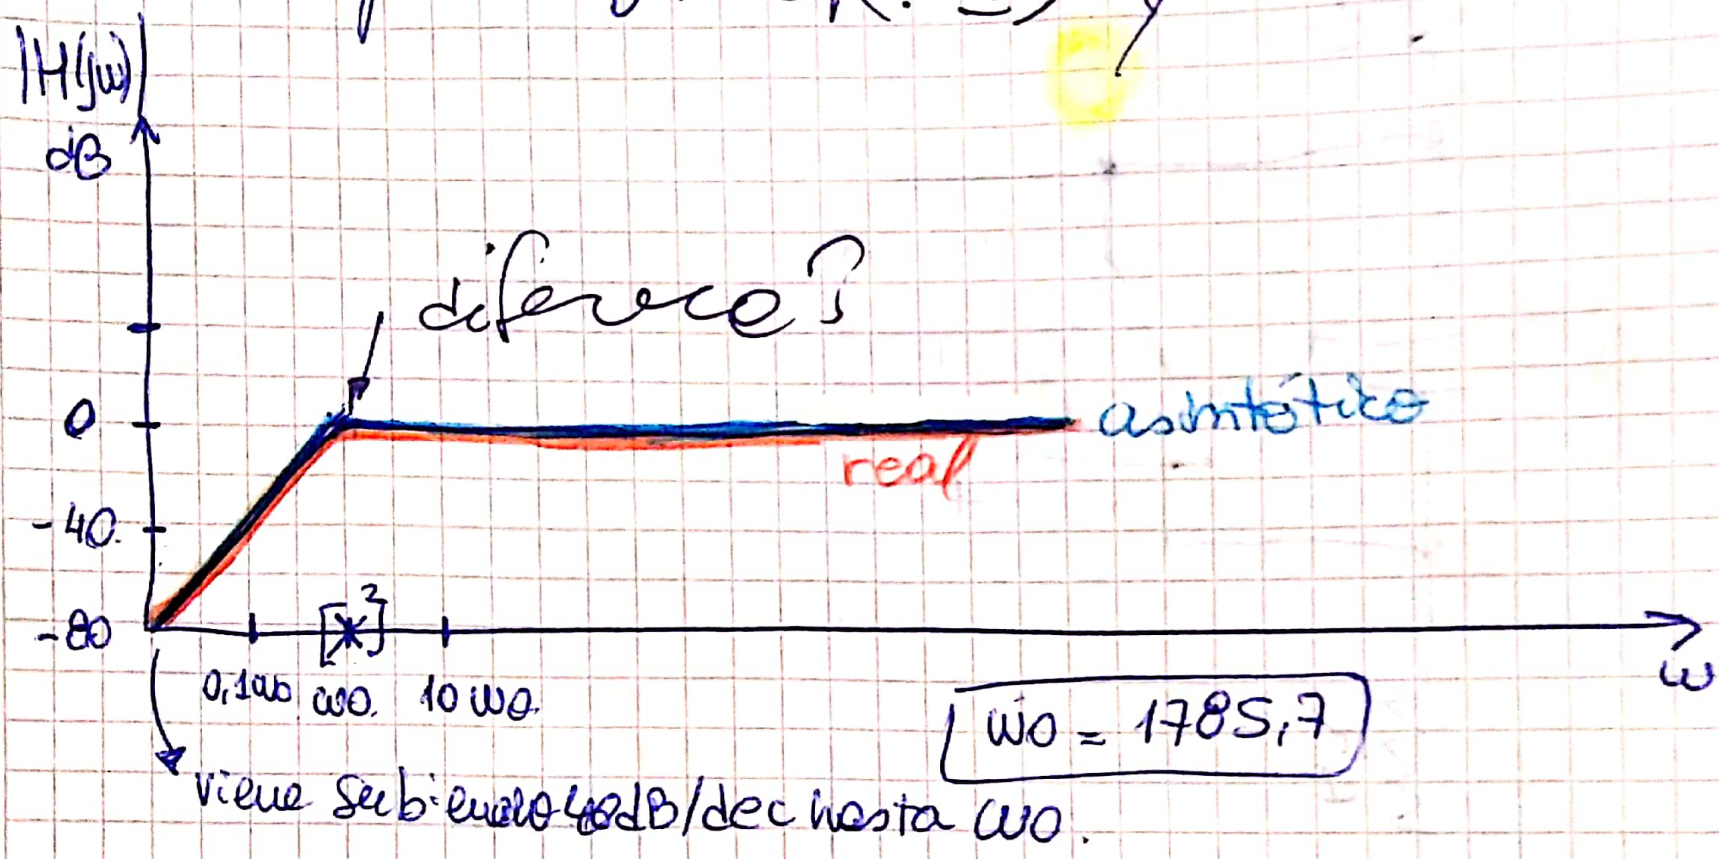 |H(jω)|
dB
diferencia?
0
asintótico
real
-40
-80
[*]²
0,1ω0 ω0. 10 ω0.
ω
ω0 = 1785,7
viene subiendo 40dB/dec hasta ω0.